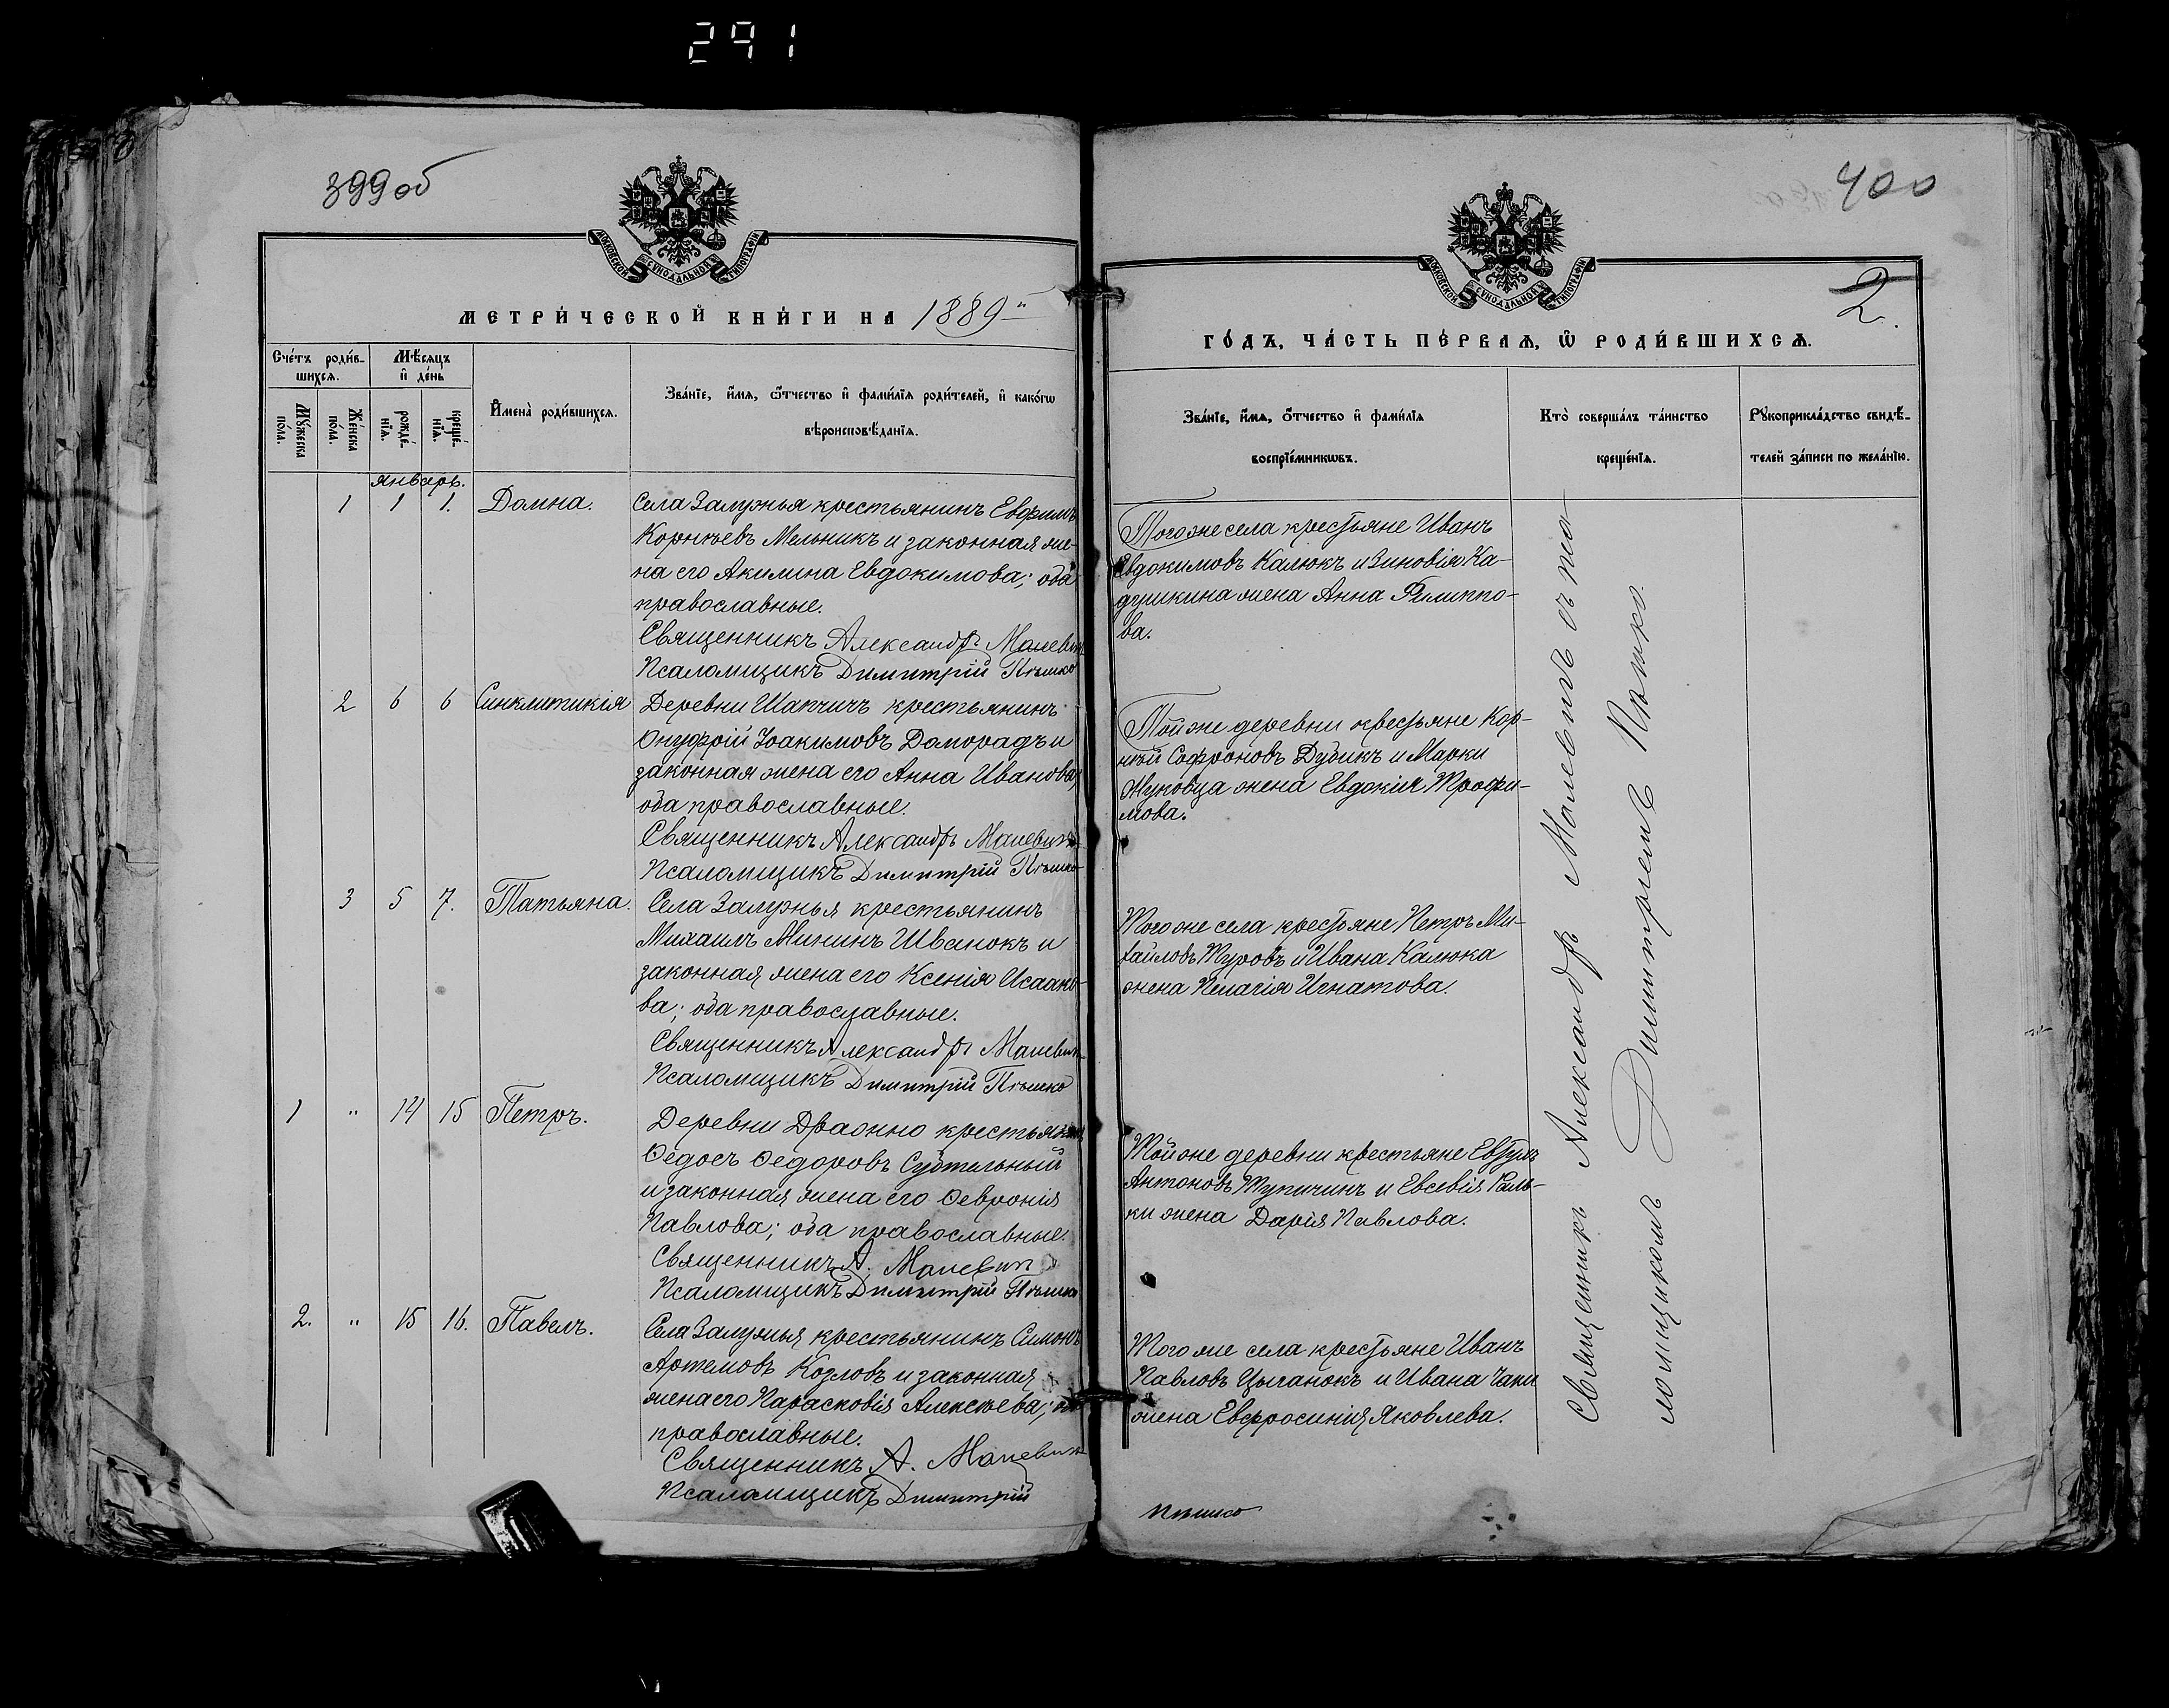 291
399об
МОСКОВСКОЙ СѴНОДАЛЬНОЙ ТИПОГРАФІИ
МЕТРИ́ЧЕСКОЙ КНИ́ГИ НА 1889й
Сче́тъ роди́в-
шихсѧ.
Мѣ́сѧцъ
и҆ де́нь
Мꙋ́жеска
по́ла.
Же́нска
по́ла.
рожде́-
нїѧ.
креще́-
нїѧ.
И҆мена̀ роди́вшихсѧ.
Зва́нїе, и҆́мѧ, ѻ҆́тчество и҆ фами́лїѧ роди́телей, и҆ како́гѡ
вѣроисповѣ́данїѧ.
Январь.
1 1 1. Домна.
Села Залужья крестьянинъ Евфимъ
Корнѣевъ Мельникъ и законная же-
на его Акилина Евдокимова; оба
православные.
Священникъ Александръ Малевичъ
Псаломщикъ Димитрій Пѣшко
2 6 6 Синклитикія
Деревни Шапчичъ крестьянинъ
Онуфрій Іоакимовъ Доморадъ и
законная жена его Анна Иванова;
оба православные.
Священникъ Александръ Малевичъ
Псаломщикъ Димитрій Пѣшко
3 5 7. Татьяна.
Села Залужья крестьянинъ
Михаилъ Мининъ Шванокъ и
законная жена его Ксенія Исаако-
ва; оба православные.
Священникъ Александръ Малевичъ
Псаломщикъ Димитрій Пѣшко
1 " 14 15 Петръ.
Деревни Дражно крестьянинъ
Ѳедосъ Ѳедоровъ Субтельный
и законная жена его Ѳевронія
Павлова; оба православные.
Священникъ А. Малевичъ
Псаломщикъ Димитрій Пѣшко
2. " 15 16. Павелъ.
Села Залужья крестьянинъ Симонъ
Артемовъ Козловъ и законная
жена его Парасковія Алексѣева; оба
православные.
Священникъ А. Малевичъ
Псаломщикъ Димитрій
400
МОСКОВСКОЙ СѴНОДАЛЬНОЙ ТИПОГРАФІИ
2.
ГО́ДЪ, ЧА́СТЬ ПЕ́РВАѦ, Ѡ҆ РОДИ́ВШИХСѦ.
Зва́нїе, и҆́мѧ, ѻ҆́тчество и҆ фами́лїѧ
воспрїе́мникѡвъ.
Кто̀ соверша́лъ та́инство
креще́нїѧ.
Рꙋкоприкла́дство свидѣ́-
телей за́писи по жела́нїю.
Того же села крестьяне Иванъ
Евдокимовъ Калюкъ и Зиновія Ка-
душкина жена Анна Филиппо-
ва.
Той же деревни крестьяне Кор-
нѣй Софроновъ Дубикъ и Марки
Жуковца жена Евдокія Трофи-
мова.
Того же села крестьяне Петръ Ми-
хайловъ Туровъ и Ивана Калюка
жена Пелагія Игнатова.
Той же деревни крестьяне
Антоновъ Тупичинъ и Евсевія Галь-
ки жена Дарія Павлова.
Того же села крестьяне Иванъ
Павловъ Цыганокъ и Ивана Чаки
жена Евфросинія Яковлева.
Священникъ Александръ Малевичъ съ пса-
ломщикомъ Димитріемъ Пѣшко.
Пѣшко